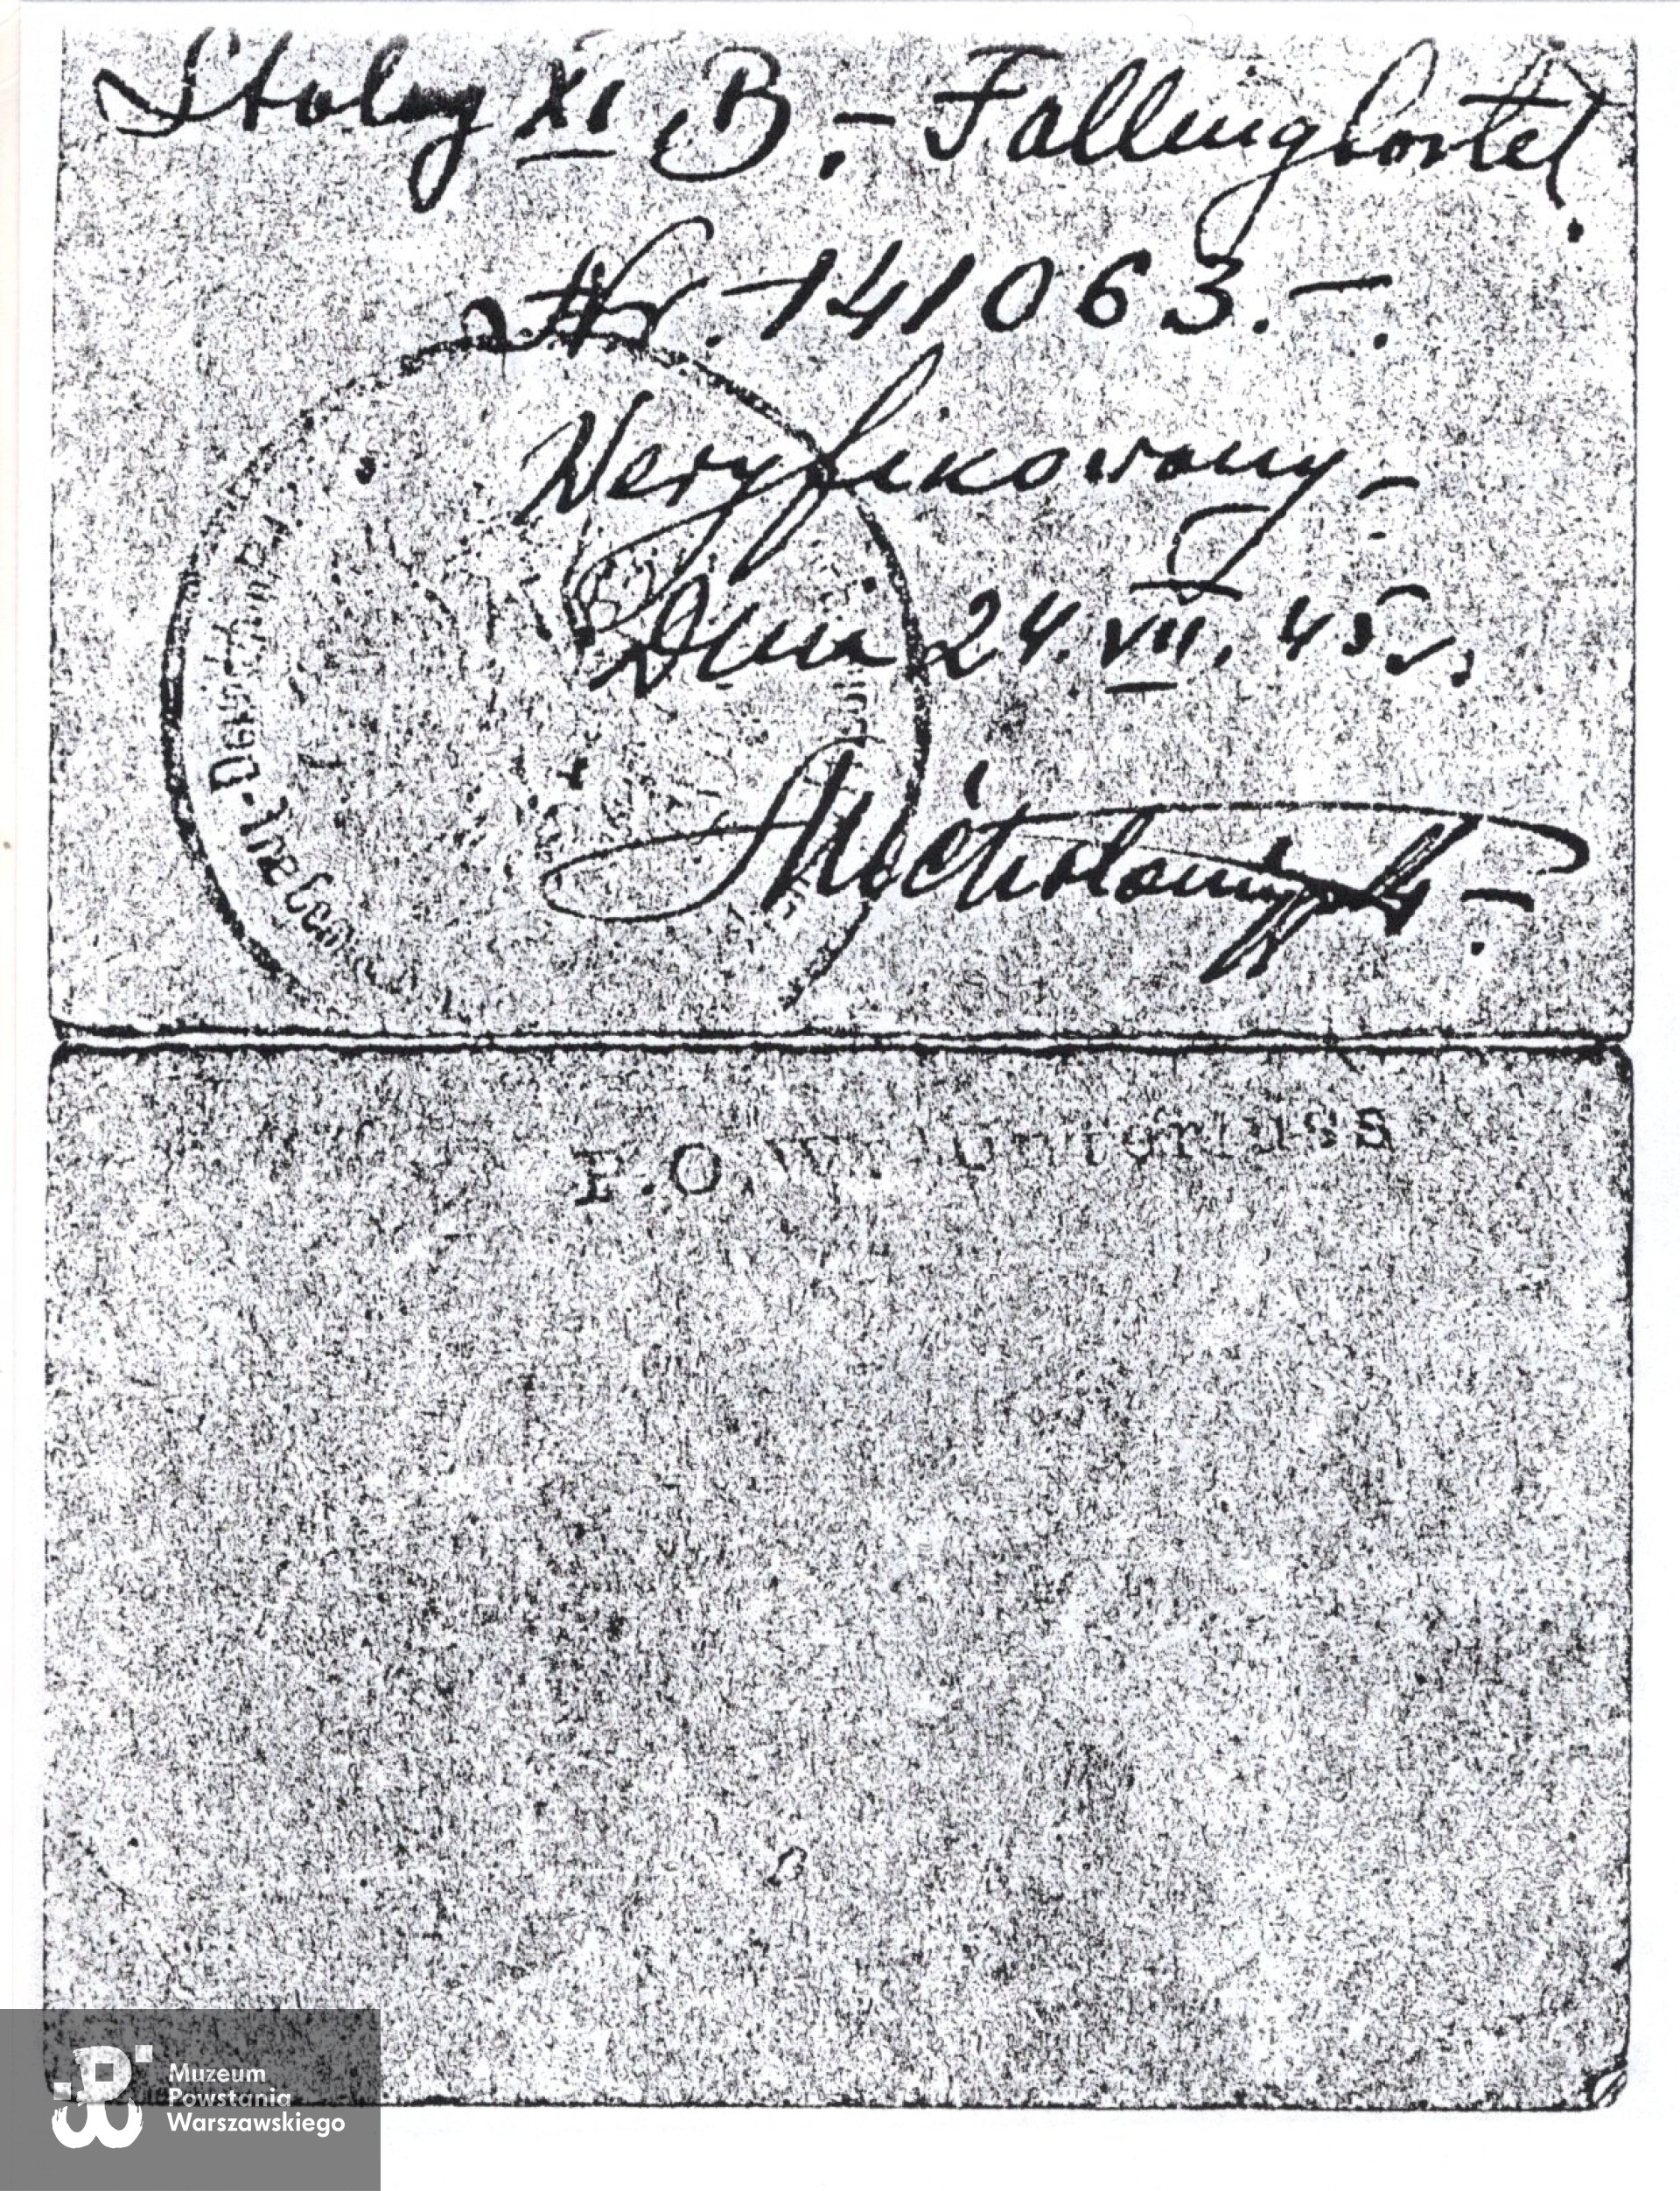 Stalag XI B.- Fallingbostel.
Nr. 141063.-.
Weryfikowany -
Dnia 24.VII.45r.
P.O.W. Unterlüss
Muzeum
Powstania
Warszawskiego